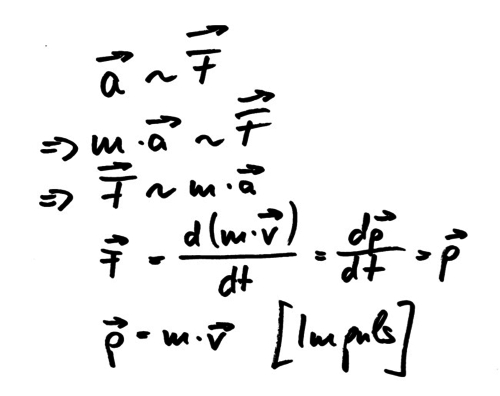 a⃗ ~ F⃗
=> m · a⃗ ~ F⃗
=> F⃗ ~ m · a⃗
F⃗ = d(m·v⃗)/dt = dp⃗/dt = p⃗
p⃗ = m · v⃗ [Impuls]